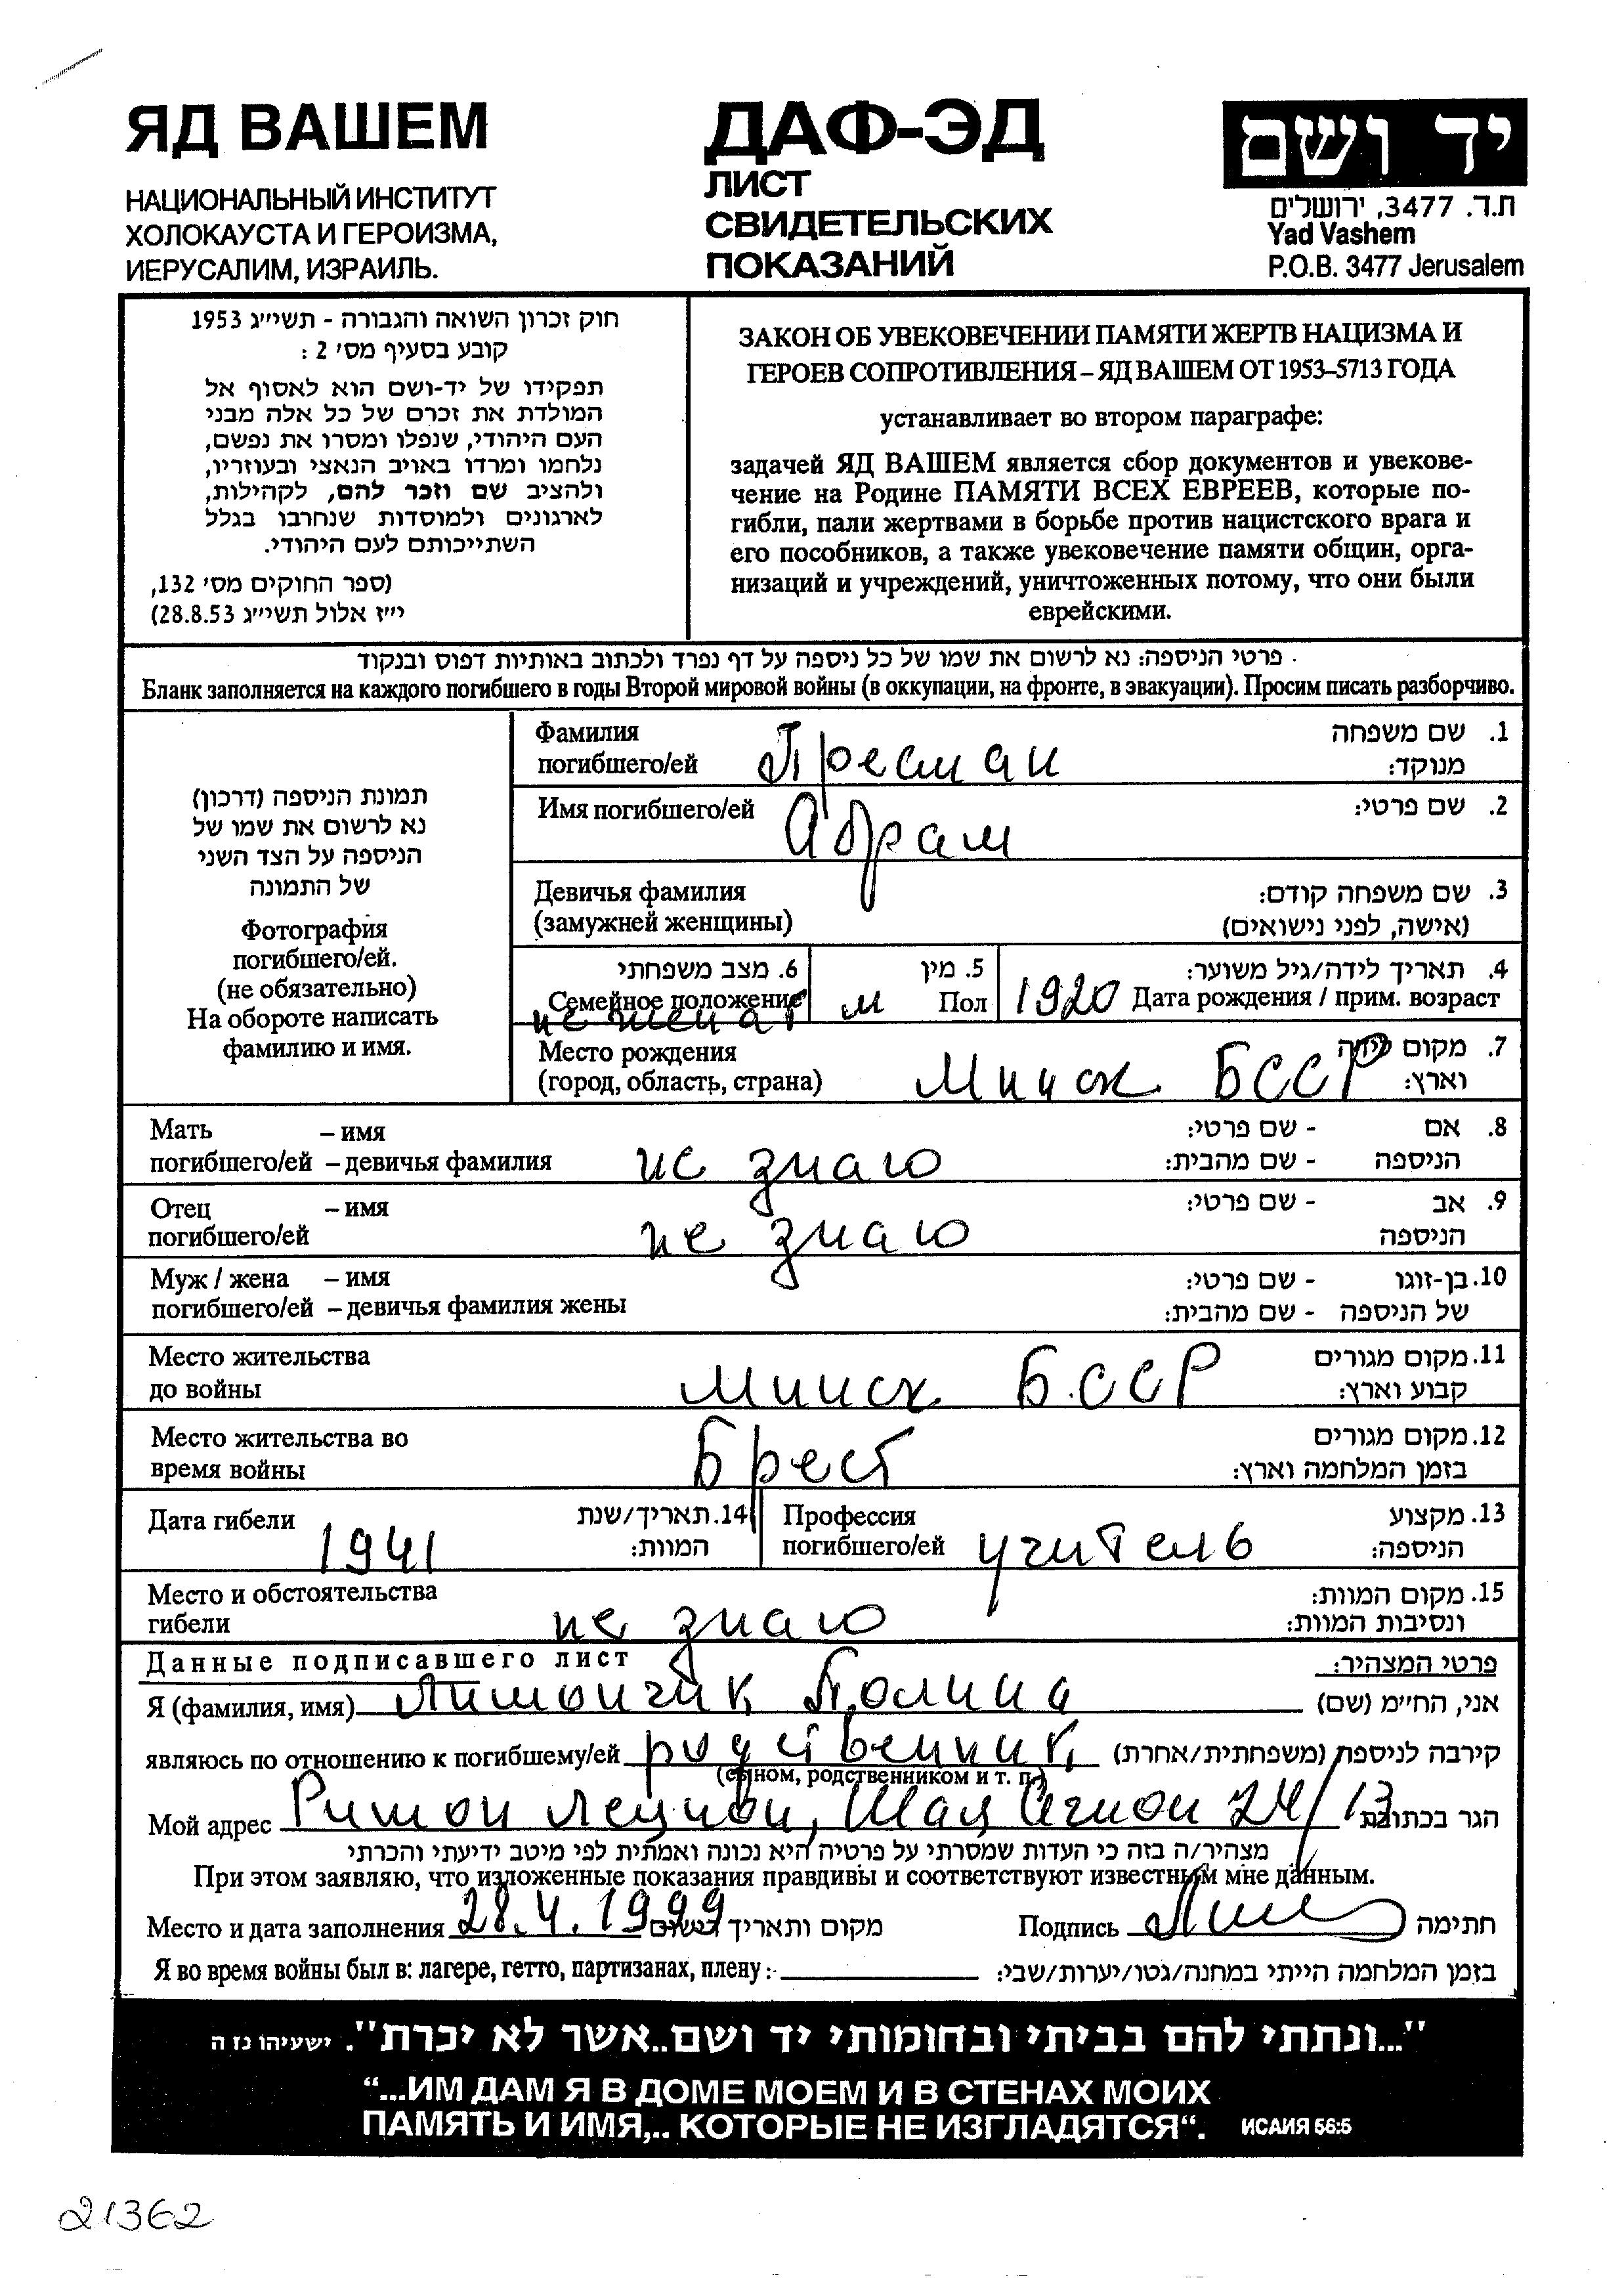 ЯД ВАШЕМ
НАЦИОНАЛЬНЫЙ ИНСТИТУТ
ХОЛОКАУСТА И ГЕРОИЗМА,
ИЕРУСАЛИМ, ИЗРАИЛЬ.
ДАФ-ЭД
ЛИСТ
СВИДЕТЕЛЬСКИХ
ПОКАЗАНИЙ
יד ושם
ת.ד. 3477, ירושלים
Yad Vashem
P.O.B. 3477 Jerusalem
חוק זכרון השואה והגבורה - תשי״ג 1953
קובע בסעיף מס׳ 2 :
תפקידו של יד-ושם הוא לאסוף אל
המולדת את זכרם של כל אלה מבני
העם היהודי, שנפלו ומסרו את נפשם,
נלחמו ומרדו באויב הנאצי ובעוזריו,
ולהציב שם וזכר להם, לקהילות,
לארגונים ולמוסדות שנחרבו בגלל
השתייכותם לעם היהודי.
(ספר החוקים מס׳ 132,
י״ז אלול תשי״ג 28.8.53)
ЗАКОН ОБ УВЕКОВЕЧЕНИИ ПАМЯТИ ЖЕРТВ НАЦИЗМА И
ГЕРОЕВ СОПРОТИВЛЕНИЯ – ЯД ВАШЕМ ОТ 1953–5713 ГОДА
устанавливает во втором параграфе:
задачей ЯД ВАШЕМ является сбор документов и увекове-
чение на Родине ПАМЯТИ ВСЕХ ЕВРЕЕВ, которые по-
гибли, пали жертвами в борьбе против нацистского врага и
его пособников, а также увековечение памяти общин, орга-
низаций и учреждений, уничтоженных потому, что они были
еврейскими.
פרטי הניספה: נא לרשום את שמו של כל ניספה על דף נפרד ולכתוב באותיות דפוס ובנקוד
Бланк заполняется на каждого погибшего в годы Второй мировой войны (в оккупации, на фронте, в эвакуации). Просим писать разборчиво.
תמונת הניספה (דרכון)
נא לרשום את שמו של
הניספה על הצד השני
של התמונה
Фотография
погибшего/ей.
(не обязательно)
На обороте написать
фамилию и имя.
Фамилия 1. שם משפחה
погибшего/ей Пресман מנוקד:
Имя погибшего/ей Абрам 2. שם פרטי:
Девичья фамилия 3. שם משפחה קודם:
(замужней женщины) (אישה, לפני נישואים)
6. מצב משפחתי 5. מין 4. תאריך לידה/גיל משוער:
Семейное положение м Пол 1920 Дата рождения / прим. возраст
не женат
Место рождения 7. מקום לידה
(город, область, страна) Минск БССР וארץ:
Мать – имя 8. אם - שם פרטי:
погибшего/ей – девичья фамилия не знаю הניספה - שם מהבית:
Отец – имя 9. אב - שם פרטי:
погибшего/ей не знаю הניספה
Муж / жена – имя 10. בן-זוגו - שם פרטי:
погибшего/ей – девичья фамилия жены של הניספה - שם מהבית:
Место жительства 11. מקום מגורים
до войны Минск Б.ССР קבוע וארץ:
Место жительства во 12. מקום מגורים
время войны Брест בזמן המלחמה וארץ:
Дата гибели 1941 14. תאריך/שנת המוות:
Профессия 13. מקצוע
погибшего/ей учитель הניספה:
Место и обстоятельства 15. מקום המוות:
гибели не знаю ונסיבות המוות:
Данные подписавшего лист פרטי המצהיר:
Я (фамилия, имя) Лимончик Полина אני, החי״מ (שם)
являюсь по отношению к погибшему/ей родственник קירבה לניספה (משפחתית/אחרת)
(сыном, родственником и т. п.)
Мой адрес Ришон Лецион, Шац 24/13 הגר בכתובת
מצהיר/ה בזה כי העדות שמסרתי על פרטיה היא נכונה ואמתית לפי מיטב ידיעתי והכרתי
При этом заявляю, что изложенные показания правдивы и соответствуют известным мне данным.
Место и дата заполнения 28.4.1999 מקום ותאריך רישום Подпись חתימה
Я во время войны был в: лагере, гетто, партизанах, плену: בזמן המלחמה הייתי במחנה/גטו/יערות/שבי:
"...ונתתי להם בביתי ובחומותי יד ושם..אשר לא יכרת". ישעיהו נז ה
“...ИМ ДАМ Я В ДОМЕ МОЕМ И В СТЕНАХ МОИХ
ПАМЯТЬ И ИМЯ,.. КОТОРЫЕ НЕ ИЗГЛАДЯТСЯ“. ИСАИЯ 56:5
21362